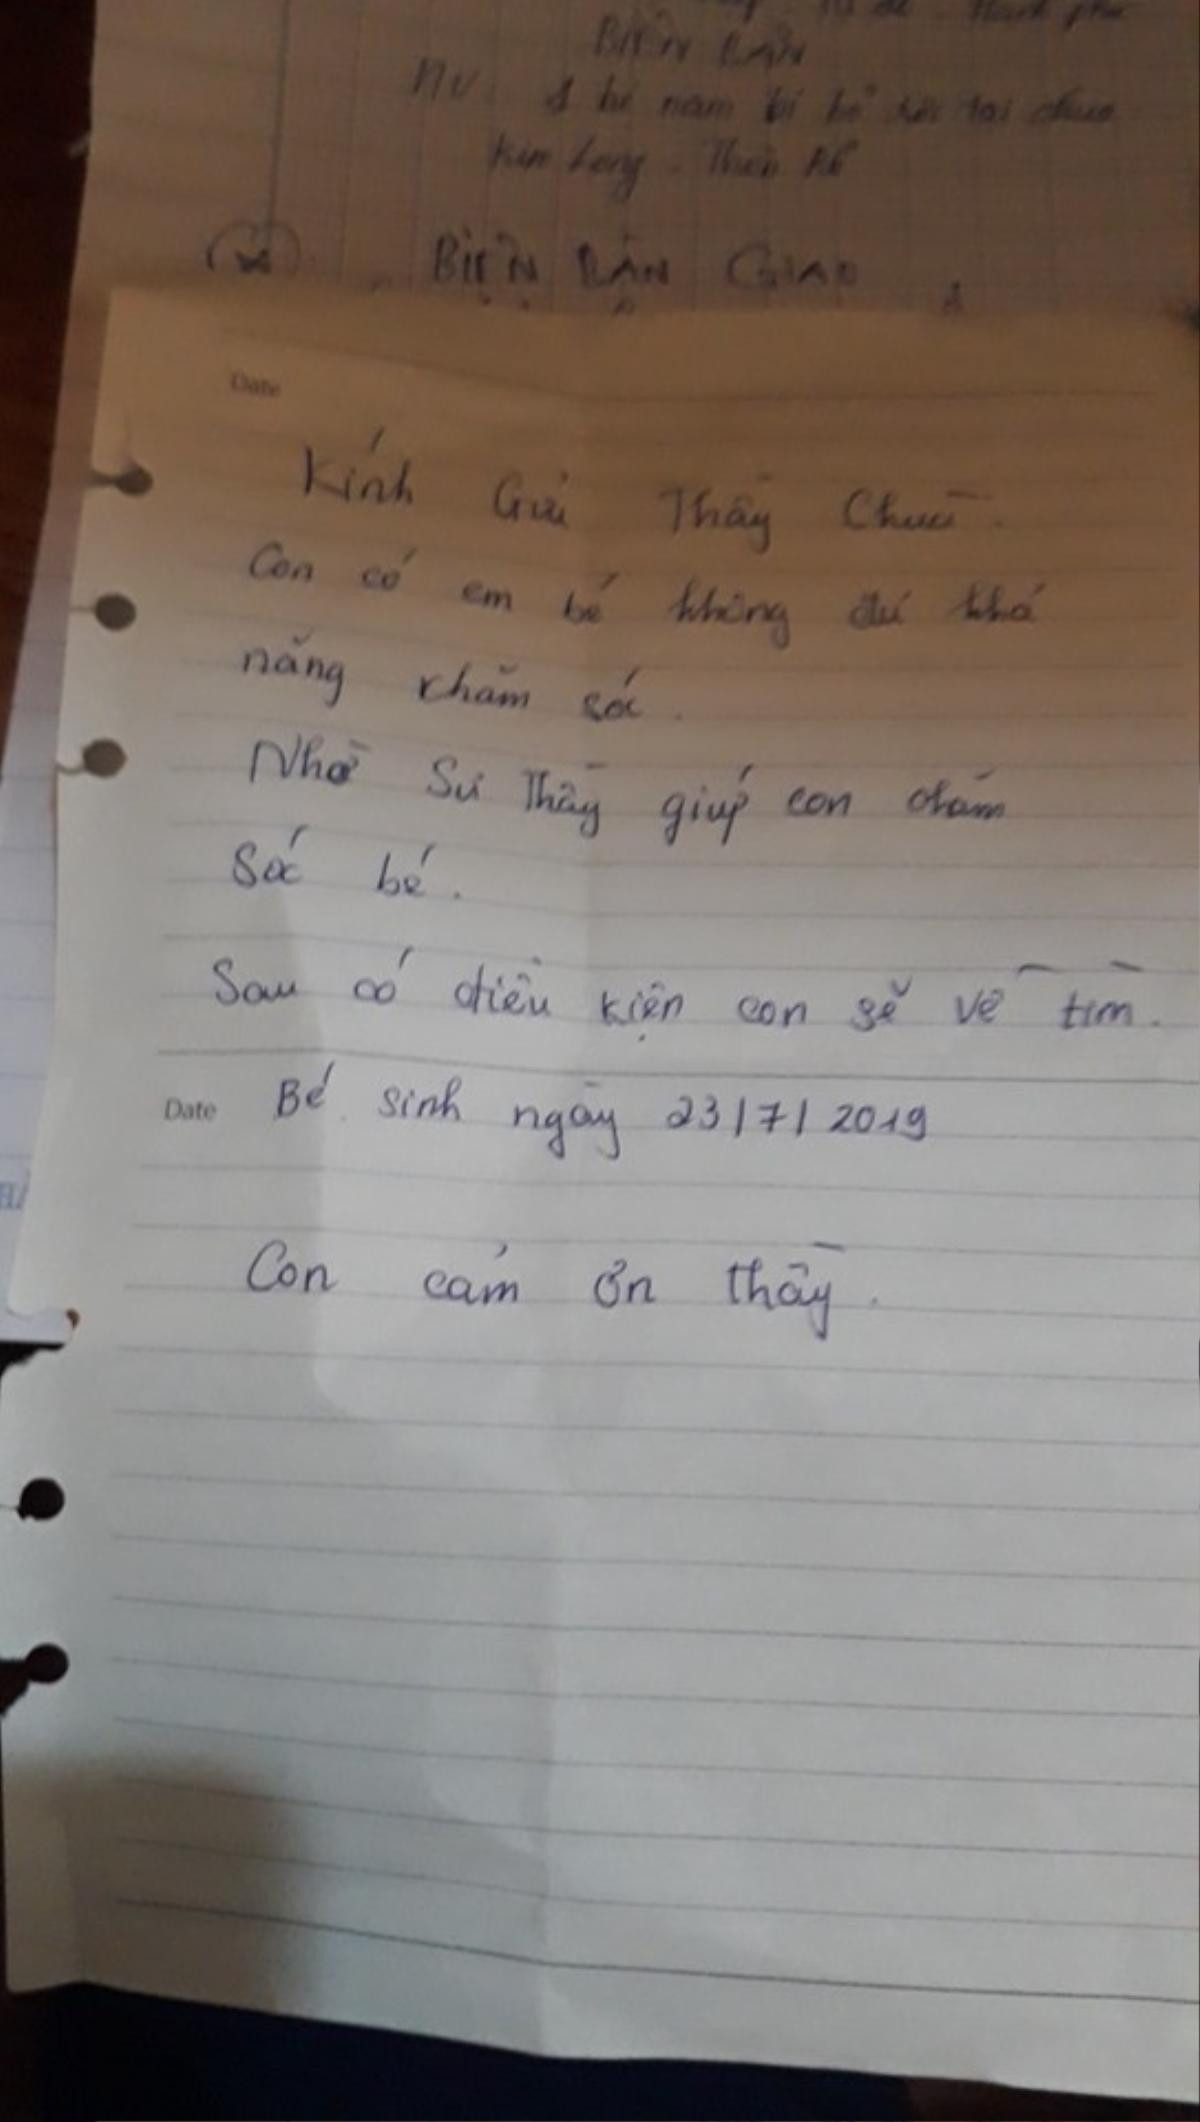 BIÊN BẢN
1 bé nam bị bỏ rơi tại chùa
Kim Long
BIÊN BẢN GIAO
Date
Kính Gửi Thầy Chùa.
Con có em bé không đủ khả
năng chăm sóc.
Nhờ Sư Thầy giúp con chăm
sóc bé.
Sau có điều kiện con sẽ về tìm.
Date
Bé sinh ngày 23/7/2019
Con cảm ơn thầy.